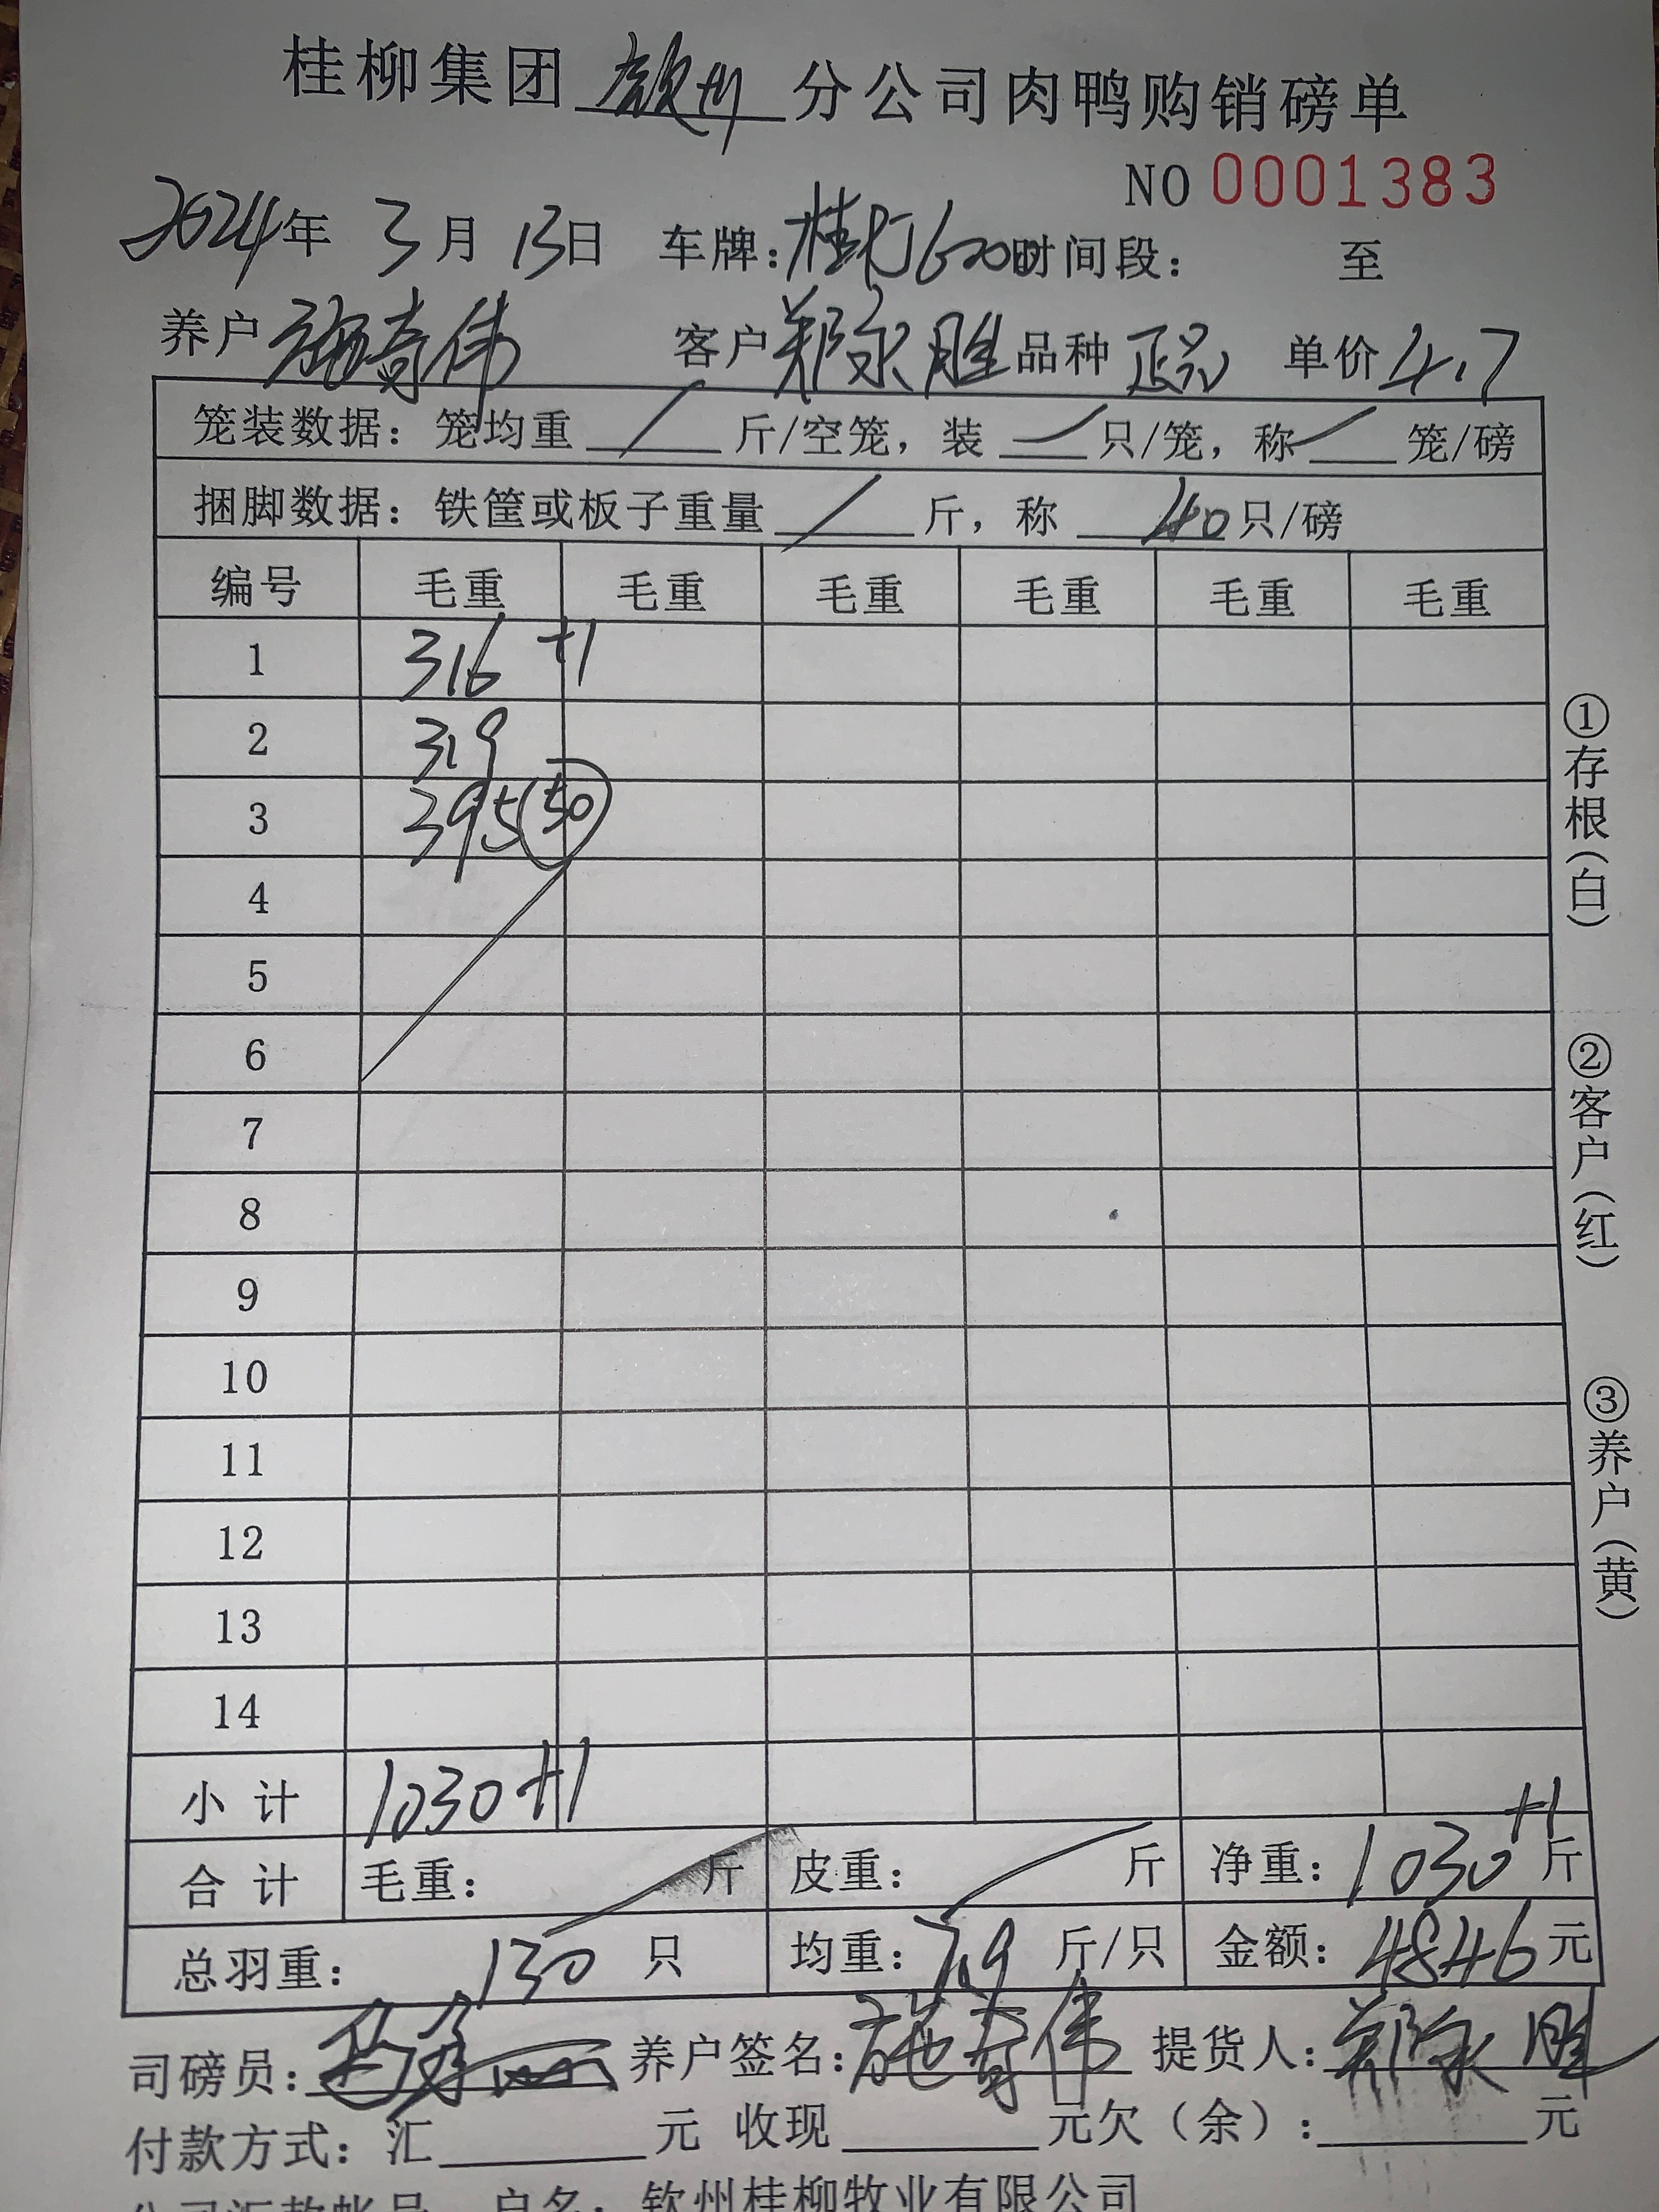 桂柳集团 钦州 分公司肉鸭购销磅单
NO 0001383
2024年 3月 13日 车牌: 时间段: 至
养户 施奇伟 客户 郑永胜 品种 正品 单价 4.7
笼装数据: 笼均重 / 斤/空笼, 装 / 只/笼, 称 / 笼/磅
捆脚数据: 铁筐或板子重量 / 斤, 称 40 只/磅
编号 毛重 毛重 毛重 毛重 毛重 毛重
1 316 +1
2 319
3 395 (50)
4
5
6
7
8
9
10
11
12
13
14
小计 1030 +1
合计 毛重: 斤 皮重: 斤 净重: 1030 +1 斤
总羽重: 130 只 均重: 7.9 斤/只 金额: 4846 元
司磅员: 养户签名: 施奇伟 提货人: 郑永胜
付款方式: 汇 元 收现 元欠(余): 元
公司汇款帐号 户名: 钦州桂柳牧业有限公司
①存根(白)
②客户(红)
③养户(黄)